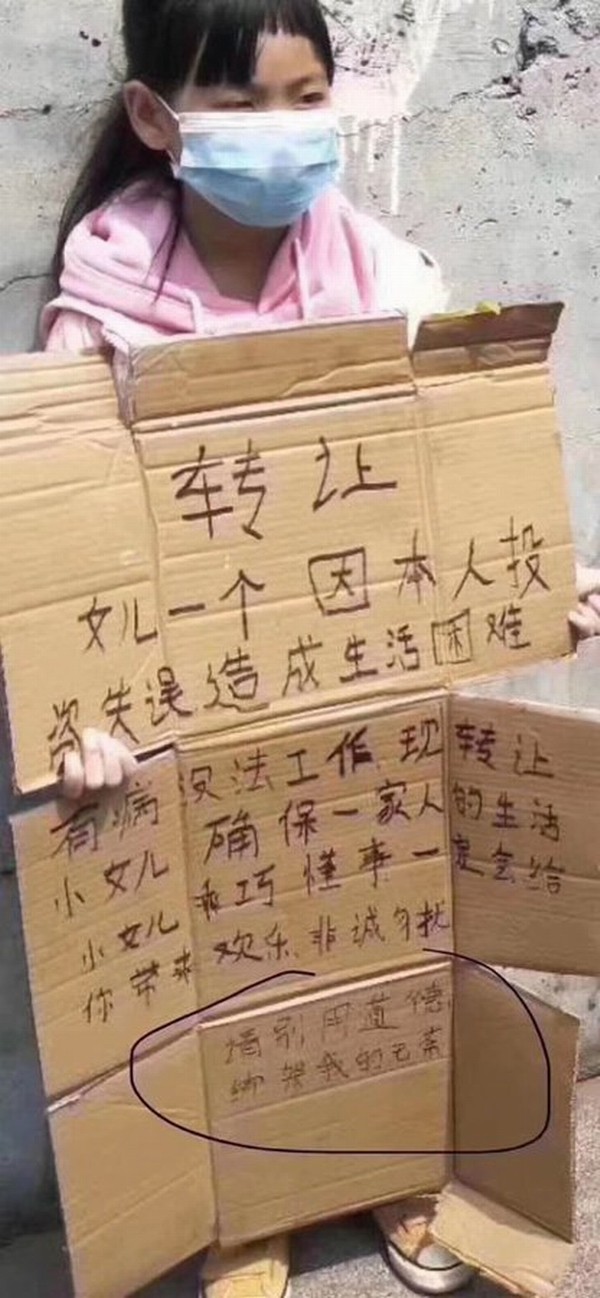 转让
女儿一个 因本人投
资失误造成生活困难
有病没法工作.现转让
小女儿 确保一家人的生活
小女儿乖巧懂事一定会给
你带来欢乐.非诚勿扰
请别用道德
绑架我的无奈